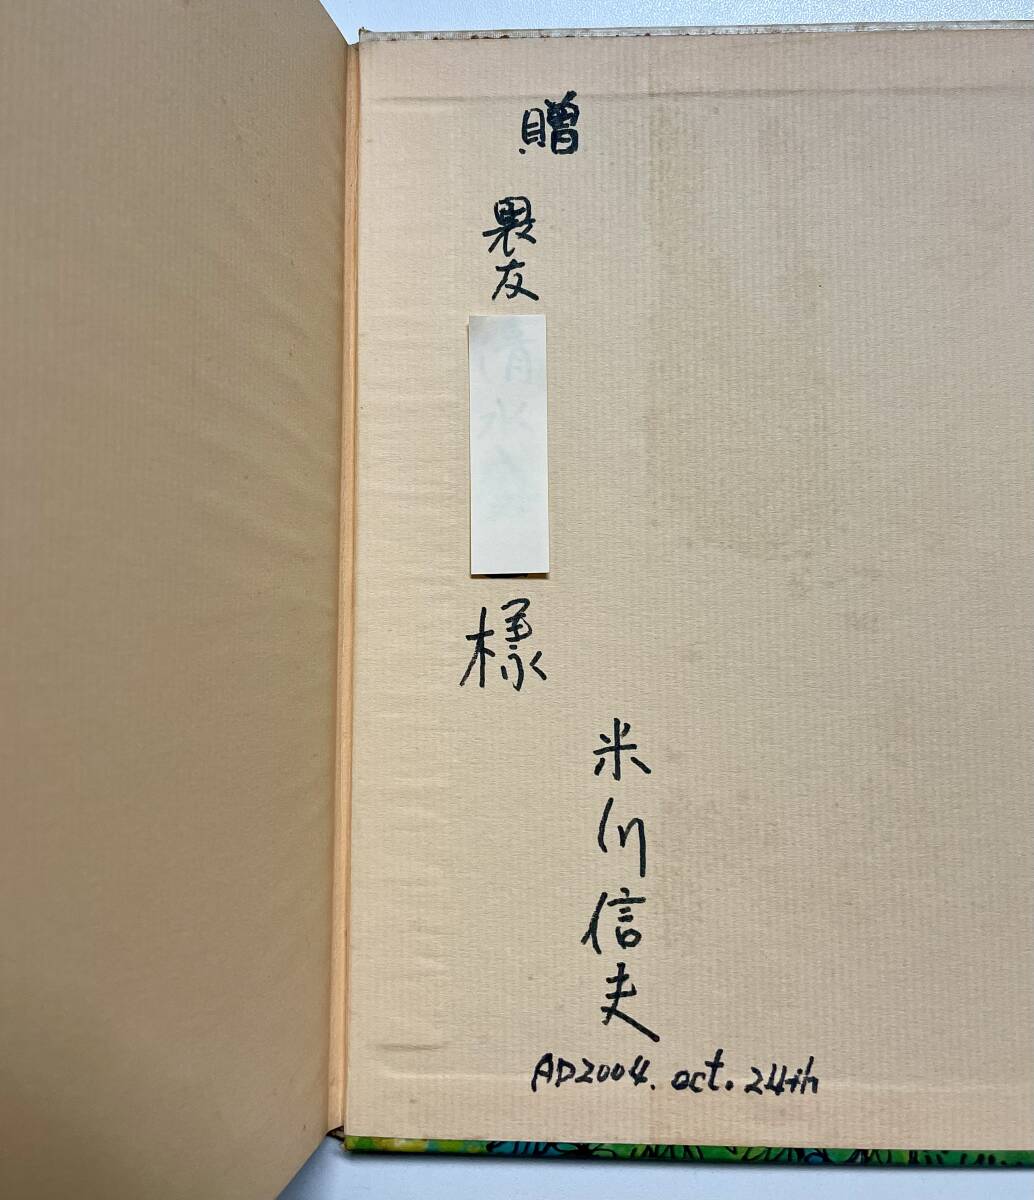 贈
畏友
様
米川信夫
AD2004. oct. 24th